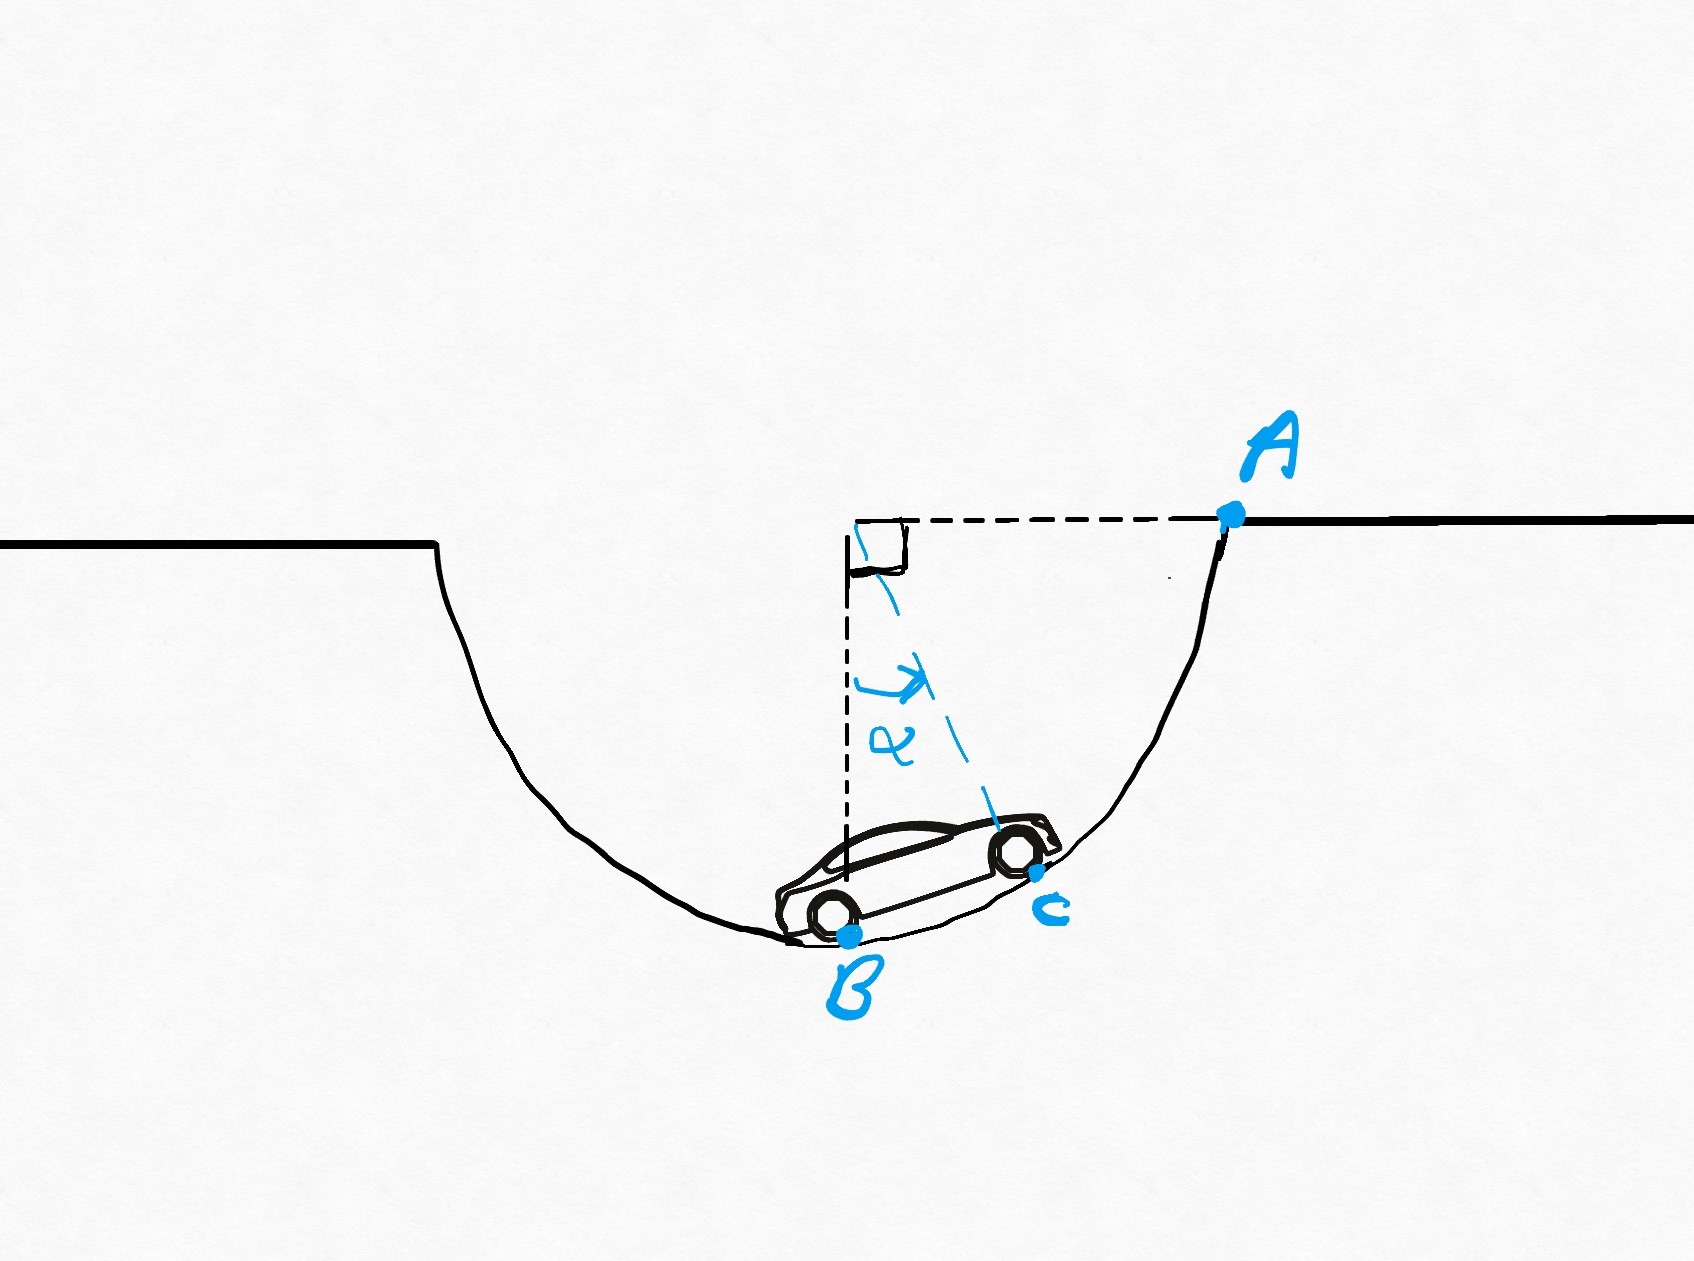 A
α
C
B